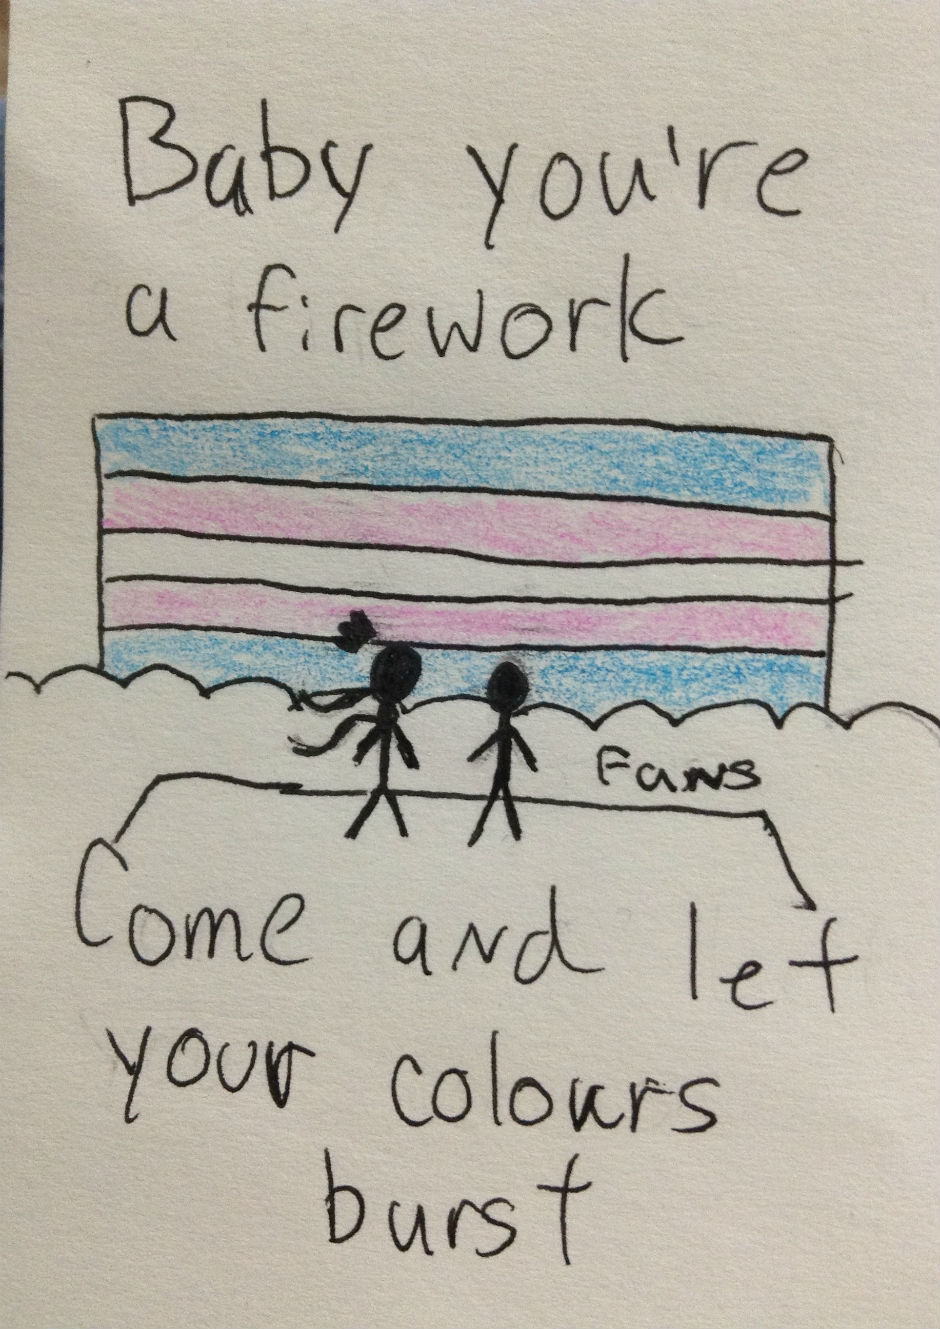 Baby you're
a firework
Fans
Come and let
your colours
burst